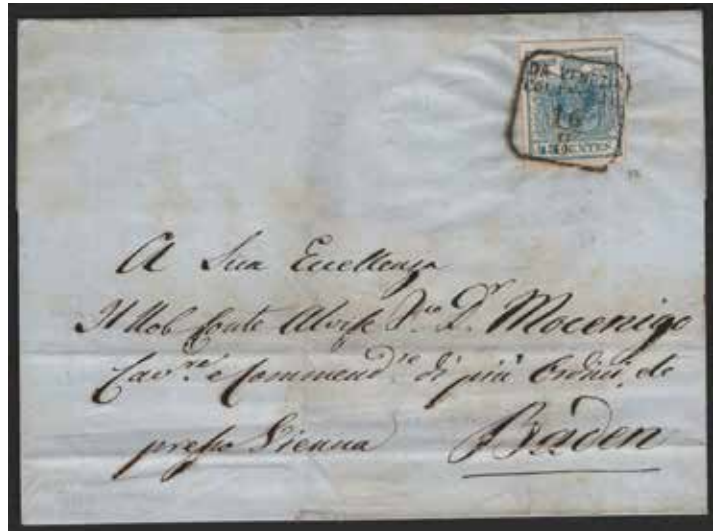 DA VENEZIA
COL
16
45 CENTES
A Sua Eccellenza
Il Nob Conte Alvise Fco Dr Mocenigo
Cavre e Commendre di più Ordini, etc
presso Vienna Baden